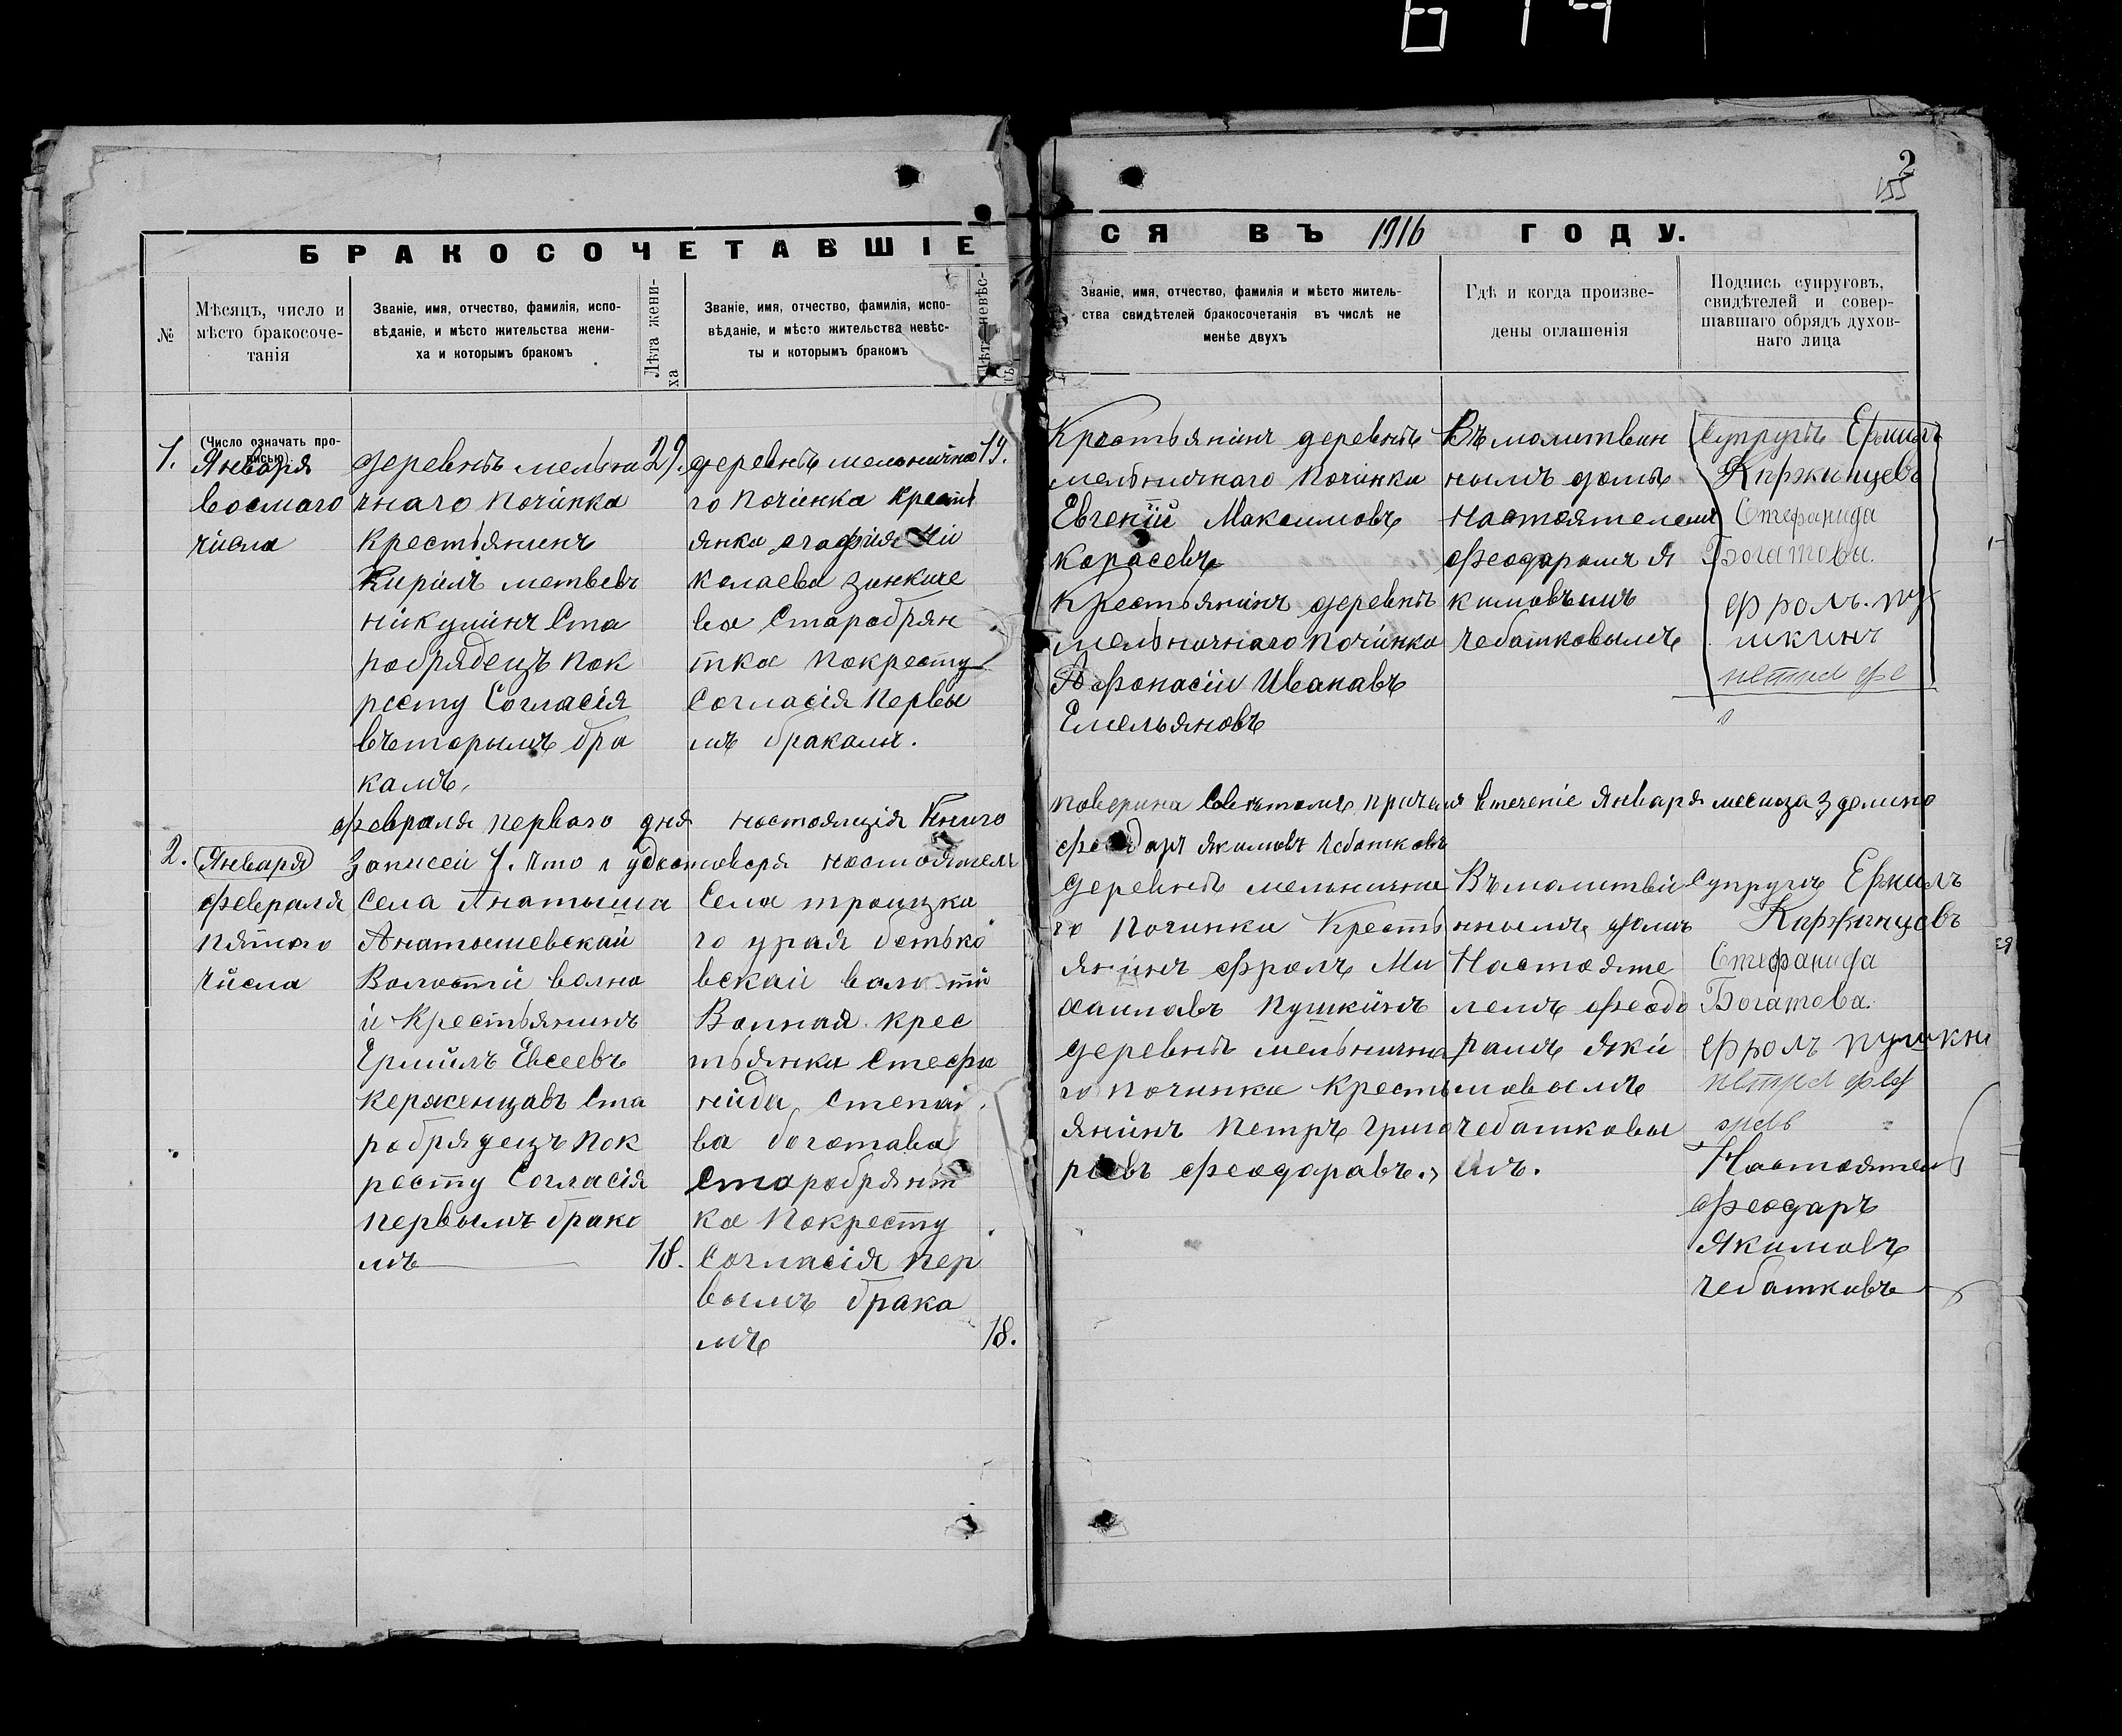 2
155
БРАКОСОЧЕТАВШІЕ
СЯ ВЪ 1916 ГОДУ.
№
Мѣсяцъ, число и
мѣсто бракосоче-
танія
Званіе, имя, отчество, фамилія, испо-
вѣданіе, и мѣсто жительства жени-
ха и которымъ бракомъ
Лѣта жени-
ха
Званіе, имя, отчество, фамилія, испо-
вѣданіе, и мѣсто жительства невѣс-
ты и которымъ бракомъ
Лѣта невѣс-
ты
Званіе, имя, отчество, фамилія и мѣсто житель-
ства свидѣтелей бракосочетанія въ числѣ не
менѣе двухъ
Гдѣ и когда произве-
дены оглашенія
Подпись супруговъ,
свидѣтелей и совер-
шавшаго обрядъ духов-
наго лица
1.
(Число означать про-
писью)
Января
восмаго
числа
деревнѣ мельни
чнаго починка
Крестьянинъ
Кирилъ метвевъ
никулинъ Ста
робрядецъ пок
ресту Согласія
въторымъ бра
камъ,
29.
деревнѣ мельнично
го починка крестъ
янка агафия Ни
колаева
ва Старобрян
тка покресту
Согласія первы
мъ бракамъ.
19.
Крестьянинъ деревнѣ
мельничнаго починка
Евгений Максимовъ
Карасевъ
Крестьянинъ деревнѣ
мельничнаго починка
Афонасии Иванавъ
Емельяновъ
Въ молитвин
нымъ домѣ
настоятелем
феодарамъ я
кимовымъ
чебатковымъ
Супругъ Ермилъ
Киржинцевъ
Стефанида
Богатова.
фролъ. пу
шкинъ
петръ фе
февраля первого дня настоящія книго
записей 1. что и удостоверя настоятель
поверина Советомъ причи втечение Января месица
феодаръ якимовъ чебатковъ
2.
Января
февраля
пятого
числа
села Анатыша
Анатышевскай
Волости волно
й Крестьянинъ
Ермилъ Евсеевъ
керженцавъ Ста
робрядецъ пок
ресту Согласія
первымъ брака
мъ
18.
Села троицка
го урая бетько
вскаи волости
Волная крес
тьянка Стефа
нида степан
ва богатава
Старобрянт
ка покресту
Согласія пер
вымъ брака
мъ
18.
деревнѣ мельнична
го починка Кресть
янинъ фролъ Ми
хаиловъ Пушкинъ
деревнѣ мельнична
го починка Кресть
янинъ петръ Григо
ревъ феодаравъ.
Въмолитви
ннымъ домѣ
Настояте
лемъ феодо
рамъ яки
мовымъ
чебатковы
мъ.
Супругъ Ермилъ
Киржинцевъ
Стефанида
Богатова.
фролъ пушкин
петръ фед
оровъ
Настоятель
феодаръ
Якимовъ
чебатковъ